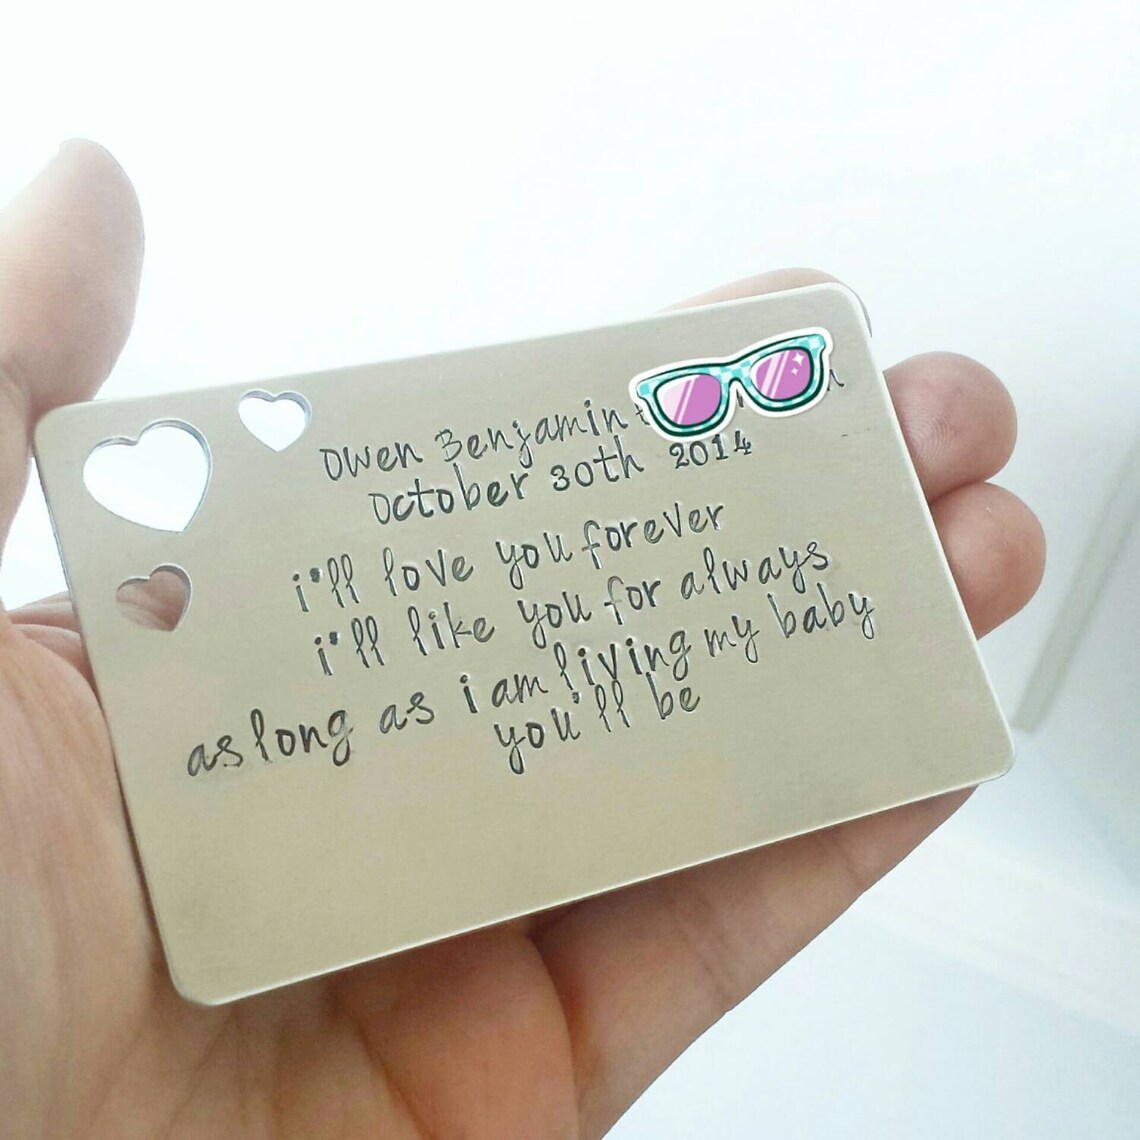 Owen Benjamin
October 30th 2014
i'll love you forever
i'll like you for always
as long as i am living my baby
you'll be